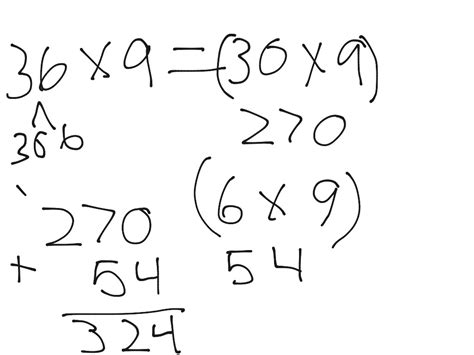 36 × 9 = (30 × 9)
30 6
270
(6 × 9)
270
+ 54
54
324